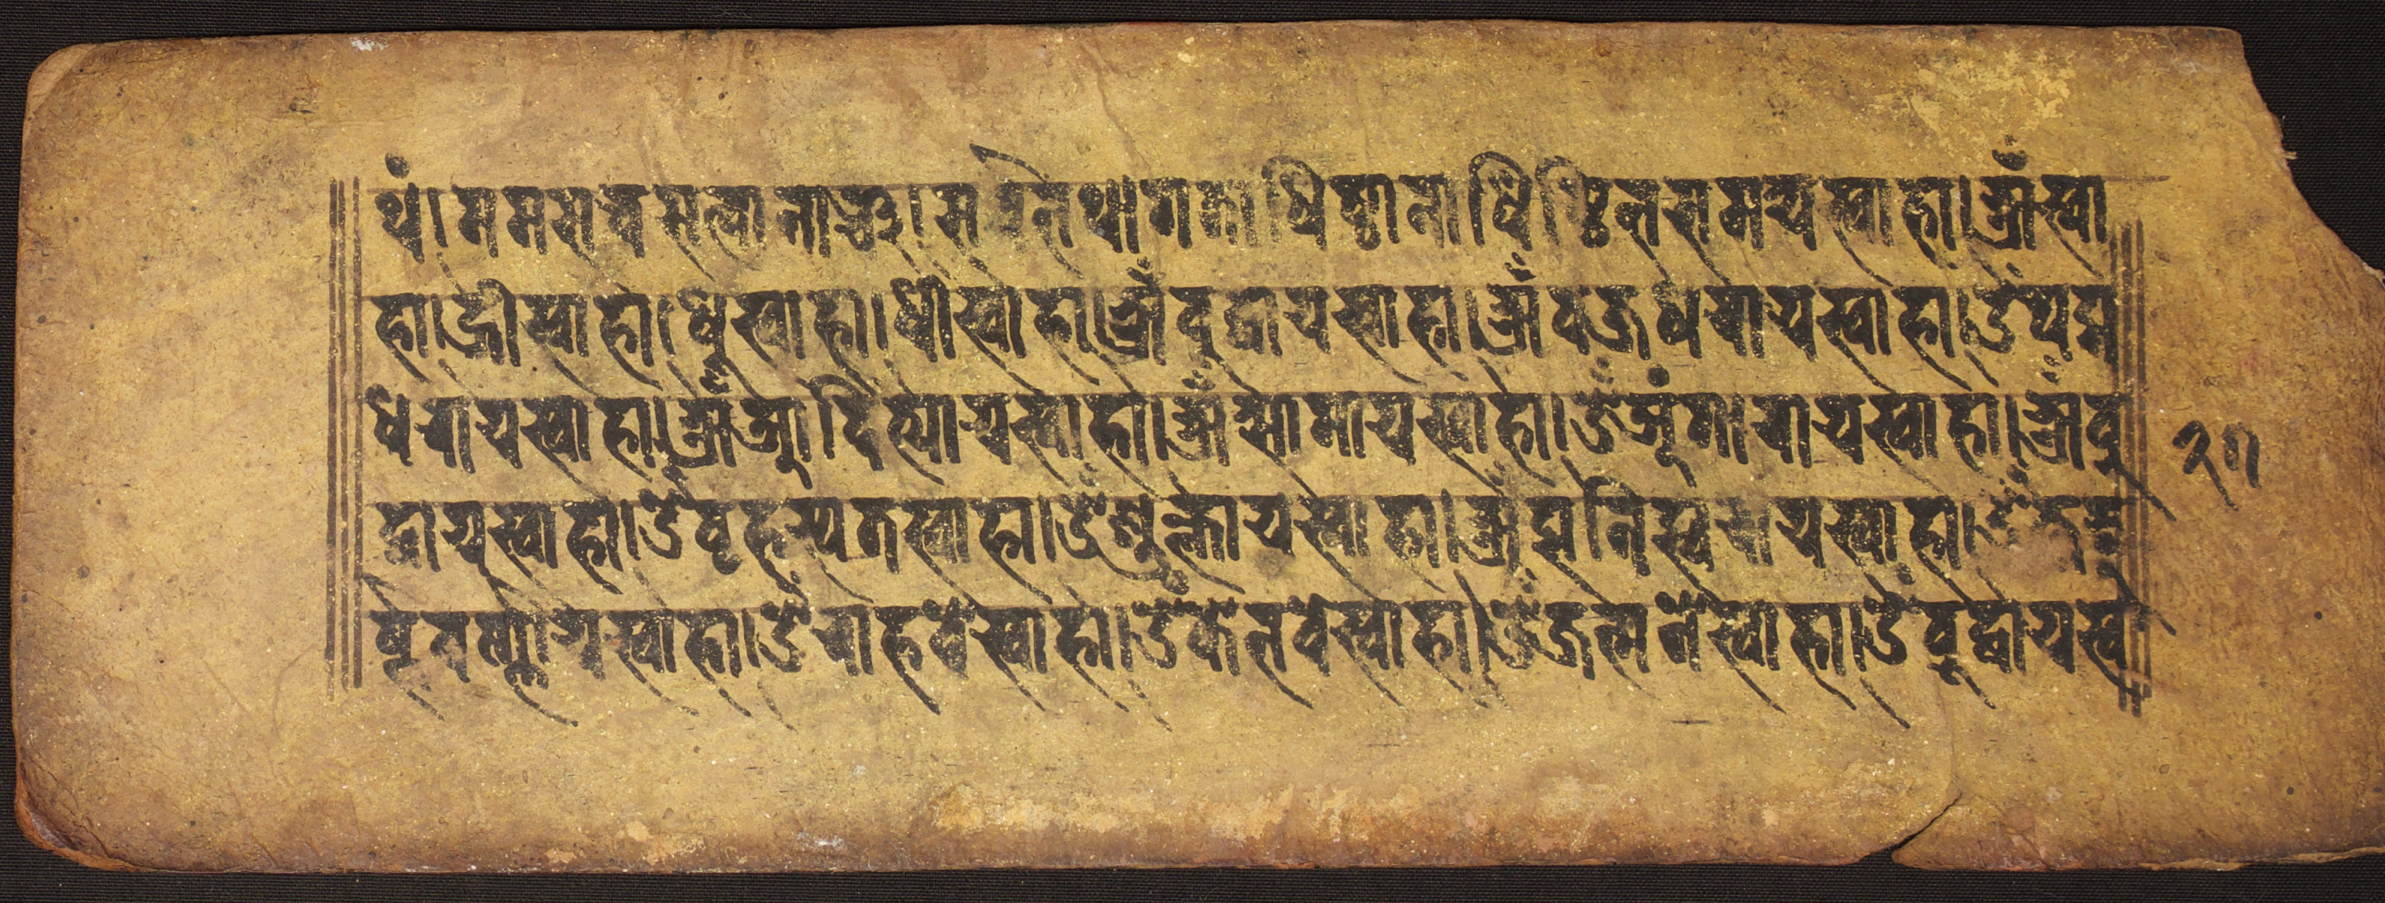 थं। मम सर्व्वसत्वानाञ्च। सर्व्वतथागताधिष्ठानाधिष्ठित समय स्वाहा। ॐ स्वा
हा। ह्रीं स्वाहा। धूं स्वाहा। धीं स्वाहा। ॐ बुद्धाय स्वाहा। ॐ वज्रधराय स्वाहा। ॐ पद्म
धराय स्वाहा। ॐ आदित्याय स्वाहा। ॐ सोमाय स्वाहा। ॐ अंगाराय स्वाहा। ॐ बु
द्धाय स्वाहा। ॐ बृहस्पतये स्वाहा। ॐ शुक्राय स्वाहा। ॐ शनिश्चराय स्वाहा। ॐ
वर्ण्णाय स्वाहा। ॐ राहवे स्वाहा। ॐ केतवे स्वाहा। ॐ जन्म स्वाहा। ॐ बुद्धाय स्व